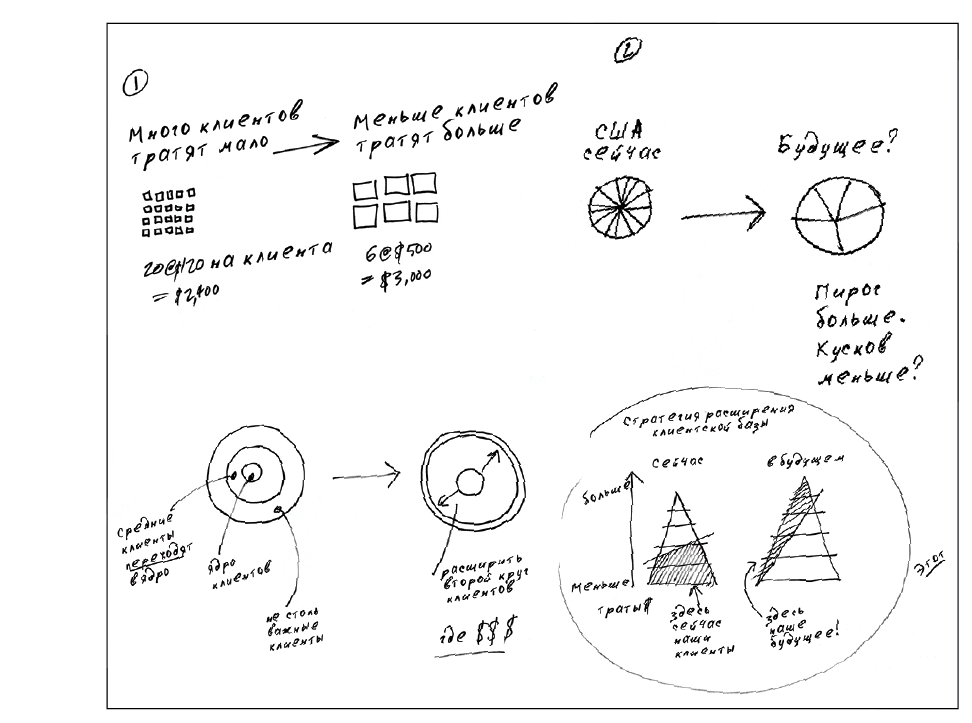 1
Много клиентов
тратят мало
Меньше клиентов
тратят больше
20@$120 на клиента
= $2,400
6@$500
= $3,000
2
США
сейчас
Будущее?
Пирог
больше.
Кусков
меньше?
средние
клиенты
переходят
в ядро
ядро
клиентов
не столь
важные
клиенты
расширить
второй круг
клиентов
где $$$
Стратегия расширения
клиентской базы
сейчас
в будущем
больше
меньше
траты $
здесь
сейчас
наши
клиенты
здесь
наше
будущее!
этот